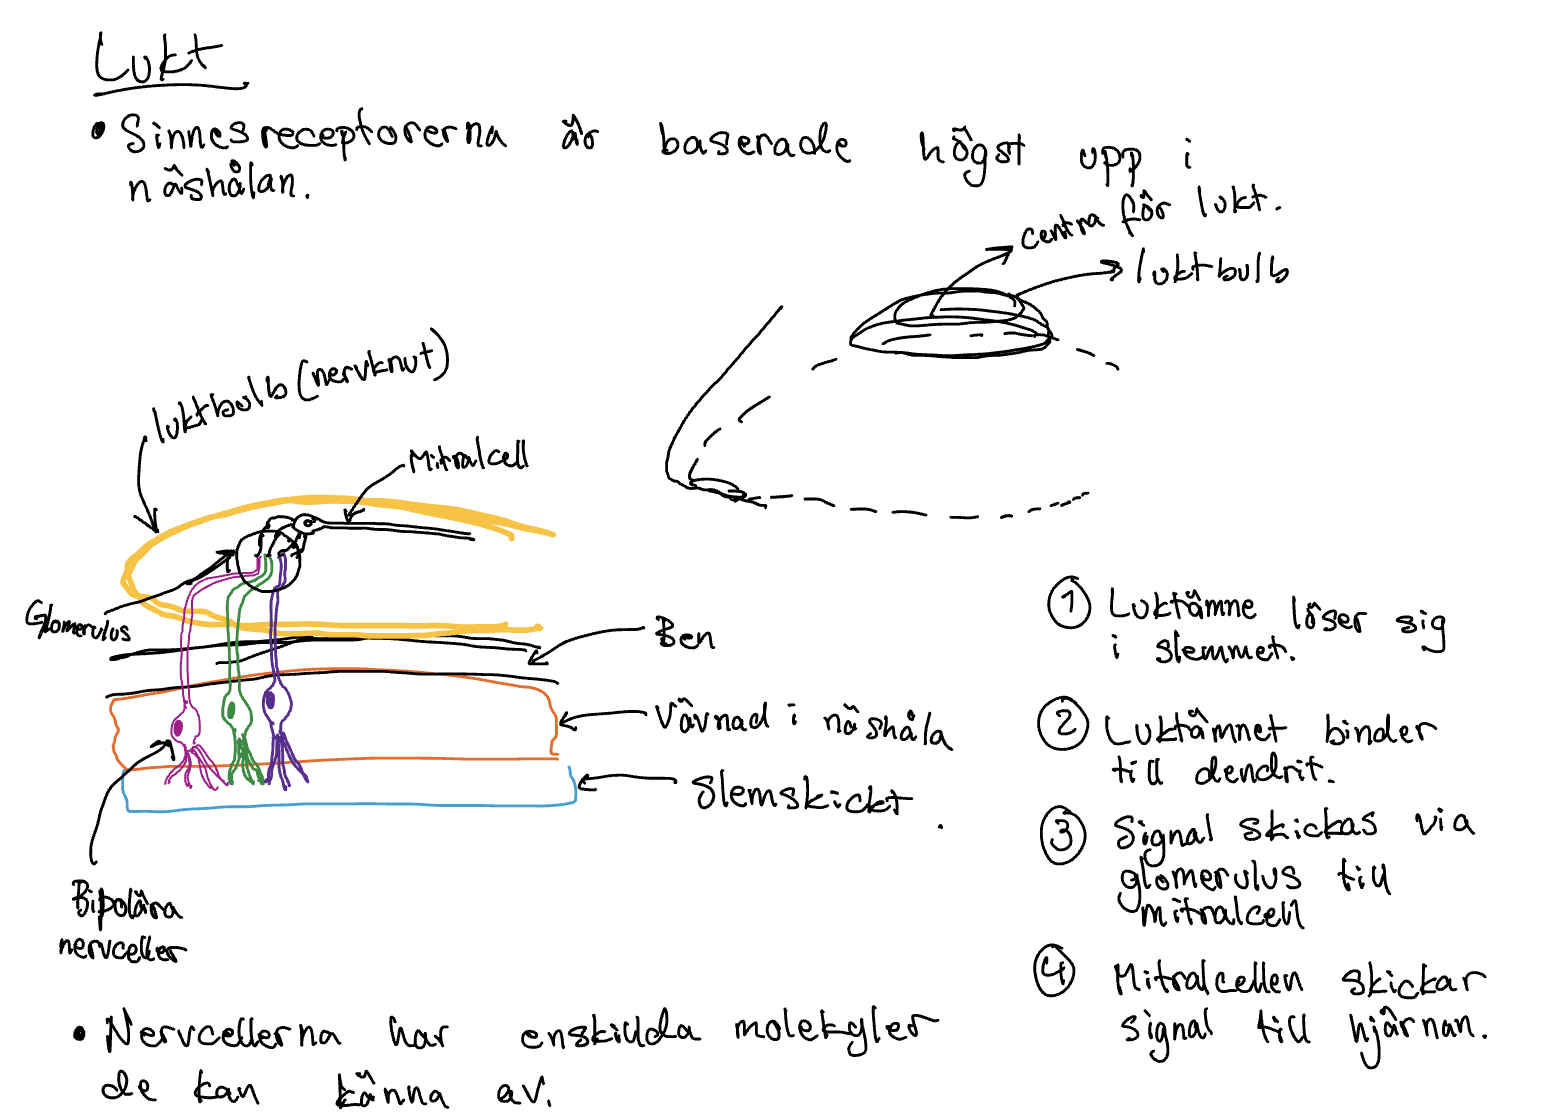 Lukt
• Sinnesreceptorerna är baserade högst upp i
näshålan.
centra för lukt.
luktbulb
luktbulb (nervknut)
Mitralcell
Glomerulus
Ben
Vävnad i näshåla
Slemskickt.
Bipolära
nervceller
① Luktämne löser sig
i slemmet.
② Luktämnet binder
till dendrit.
③ Signal skickas via
glomerulus till
mitralcell
④ Mitralcellen skickar
signal till hjärnan.
• Nervcellerna har enskillda molekyler
de kan känna av.